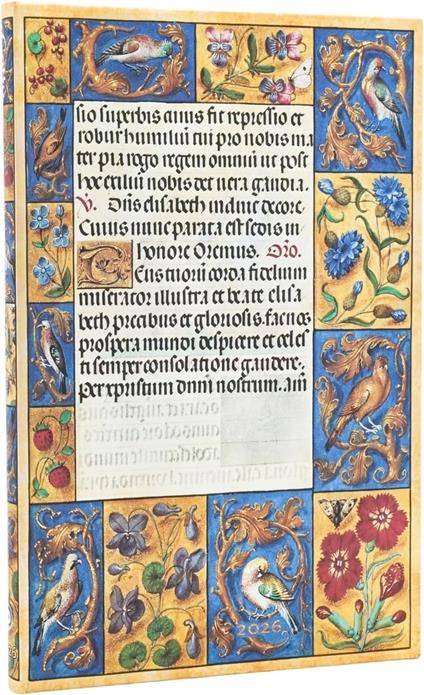 sio superbis aīus fit repressio et
robur humiliū cui pro nobis ma
ter pia rogo regem omniū ut post
hoc exiliū nobis det uera gaudia.
V. elisabeth decore.
Cuius nunc parata est sedis in
honore Oremus. Oro.
Deus tuorū corda fidelium
miserator illustra et beate elisa
beth precibus et gloriosis. fac nos
prospera mundi despicere et celes
ti semper consolatione gaudere.
Per xpristum dnm nostrum. am
2026